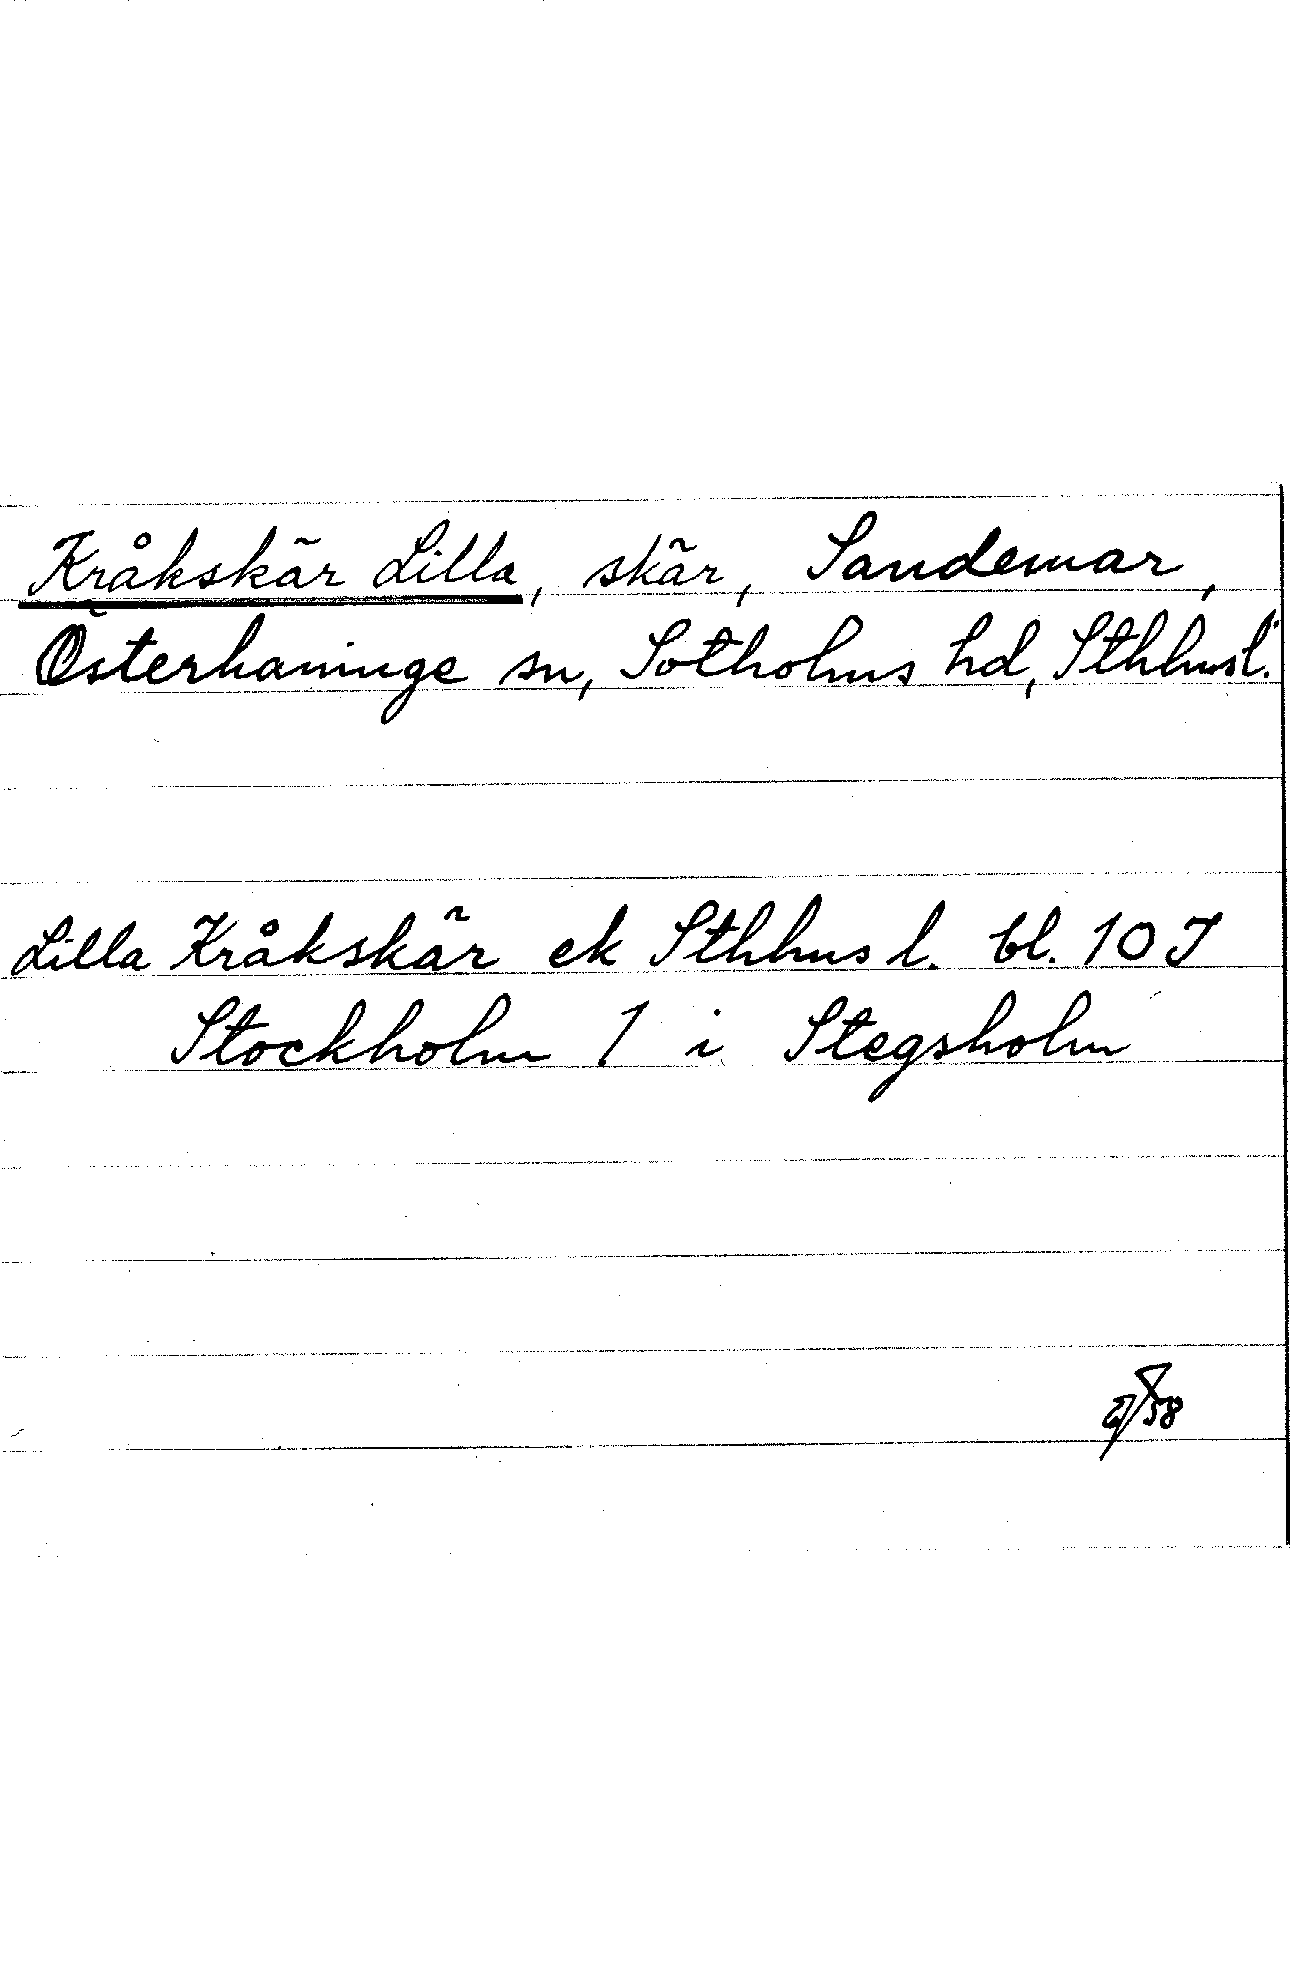 Kråkskär Lilla, skär, Sandemar,
Österhaninge sn, Sotholms hd, Sthlmsl.
Lilla Kråkskär ek Sthlms l. bl. 10 J
Stockholm 1 i Stegsholm